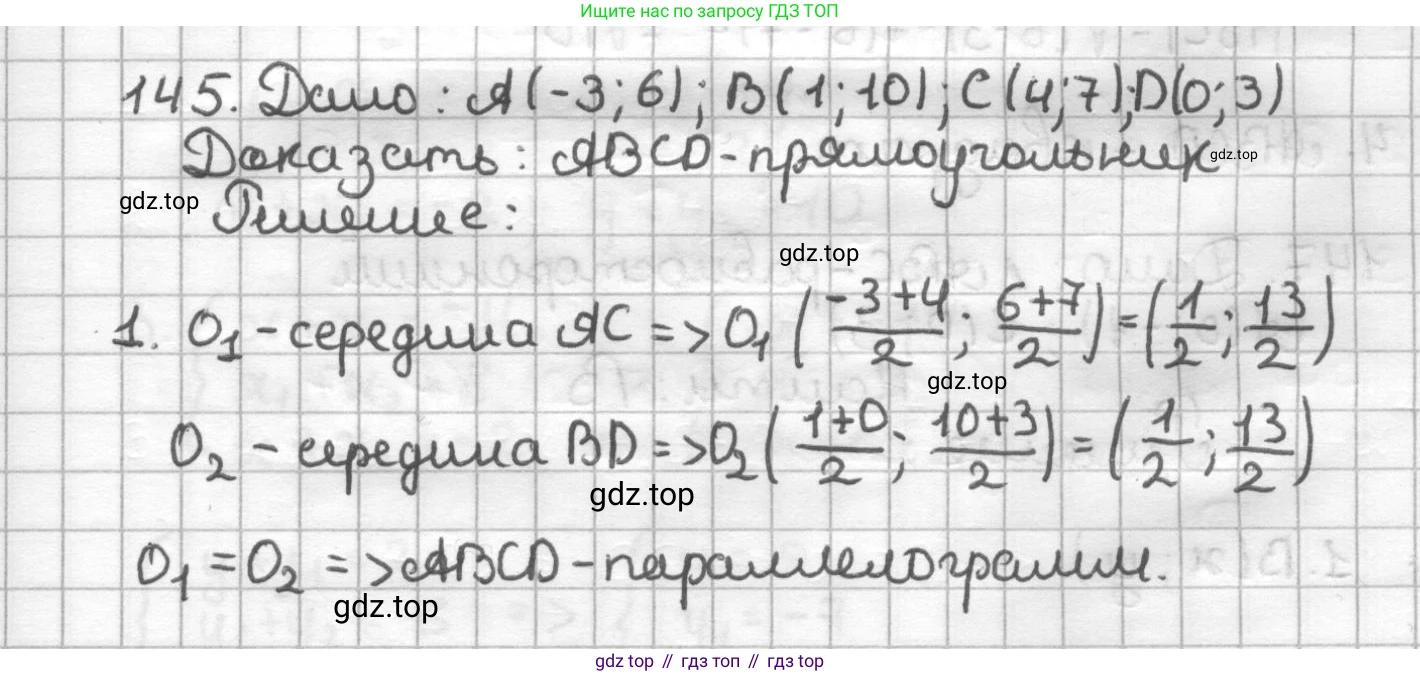 Ищите нас по запросу ГДЗ ТОП
145. Дано: A(-3;6); B(1;10); C(4;7); D(0;3)
Доказать: ABCD - прямоугольник
gdz.top
gdz.top
Решение:
gdz.top
1. O₁ - середина AC => O₁ ((-3+4)/2; (6+7)/2) = (1/2; 13/2)
gdz.top
O₂ - середина BD => O₂ ((1+0)/2; (10+3)/2) = (1/2; 13/2)
gdz.top
O₁ = O₂ => ABCD - параллелограмм.
gdz.top
gdz top // гдз топ // gdz top